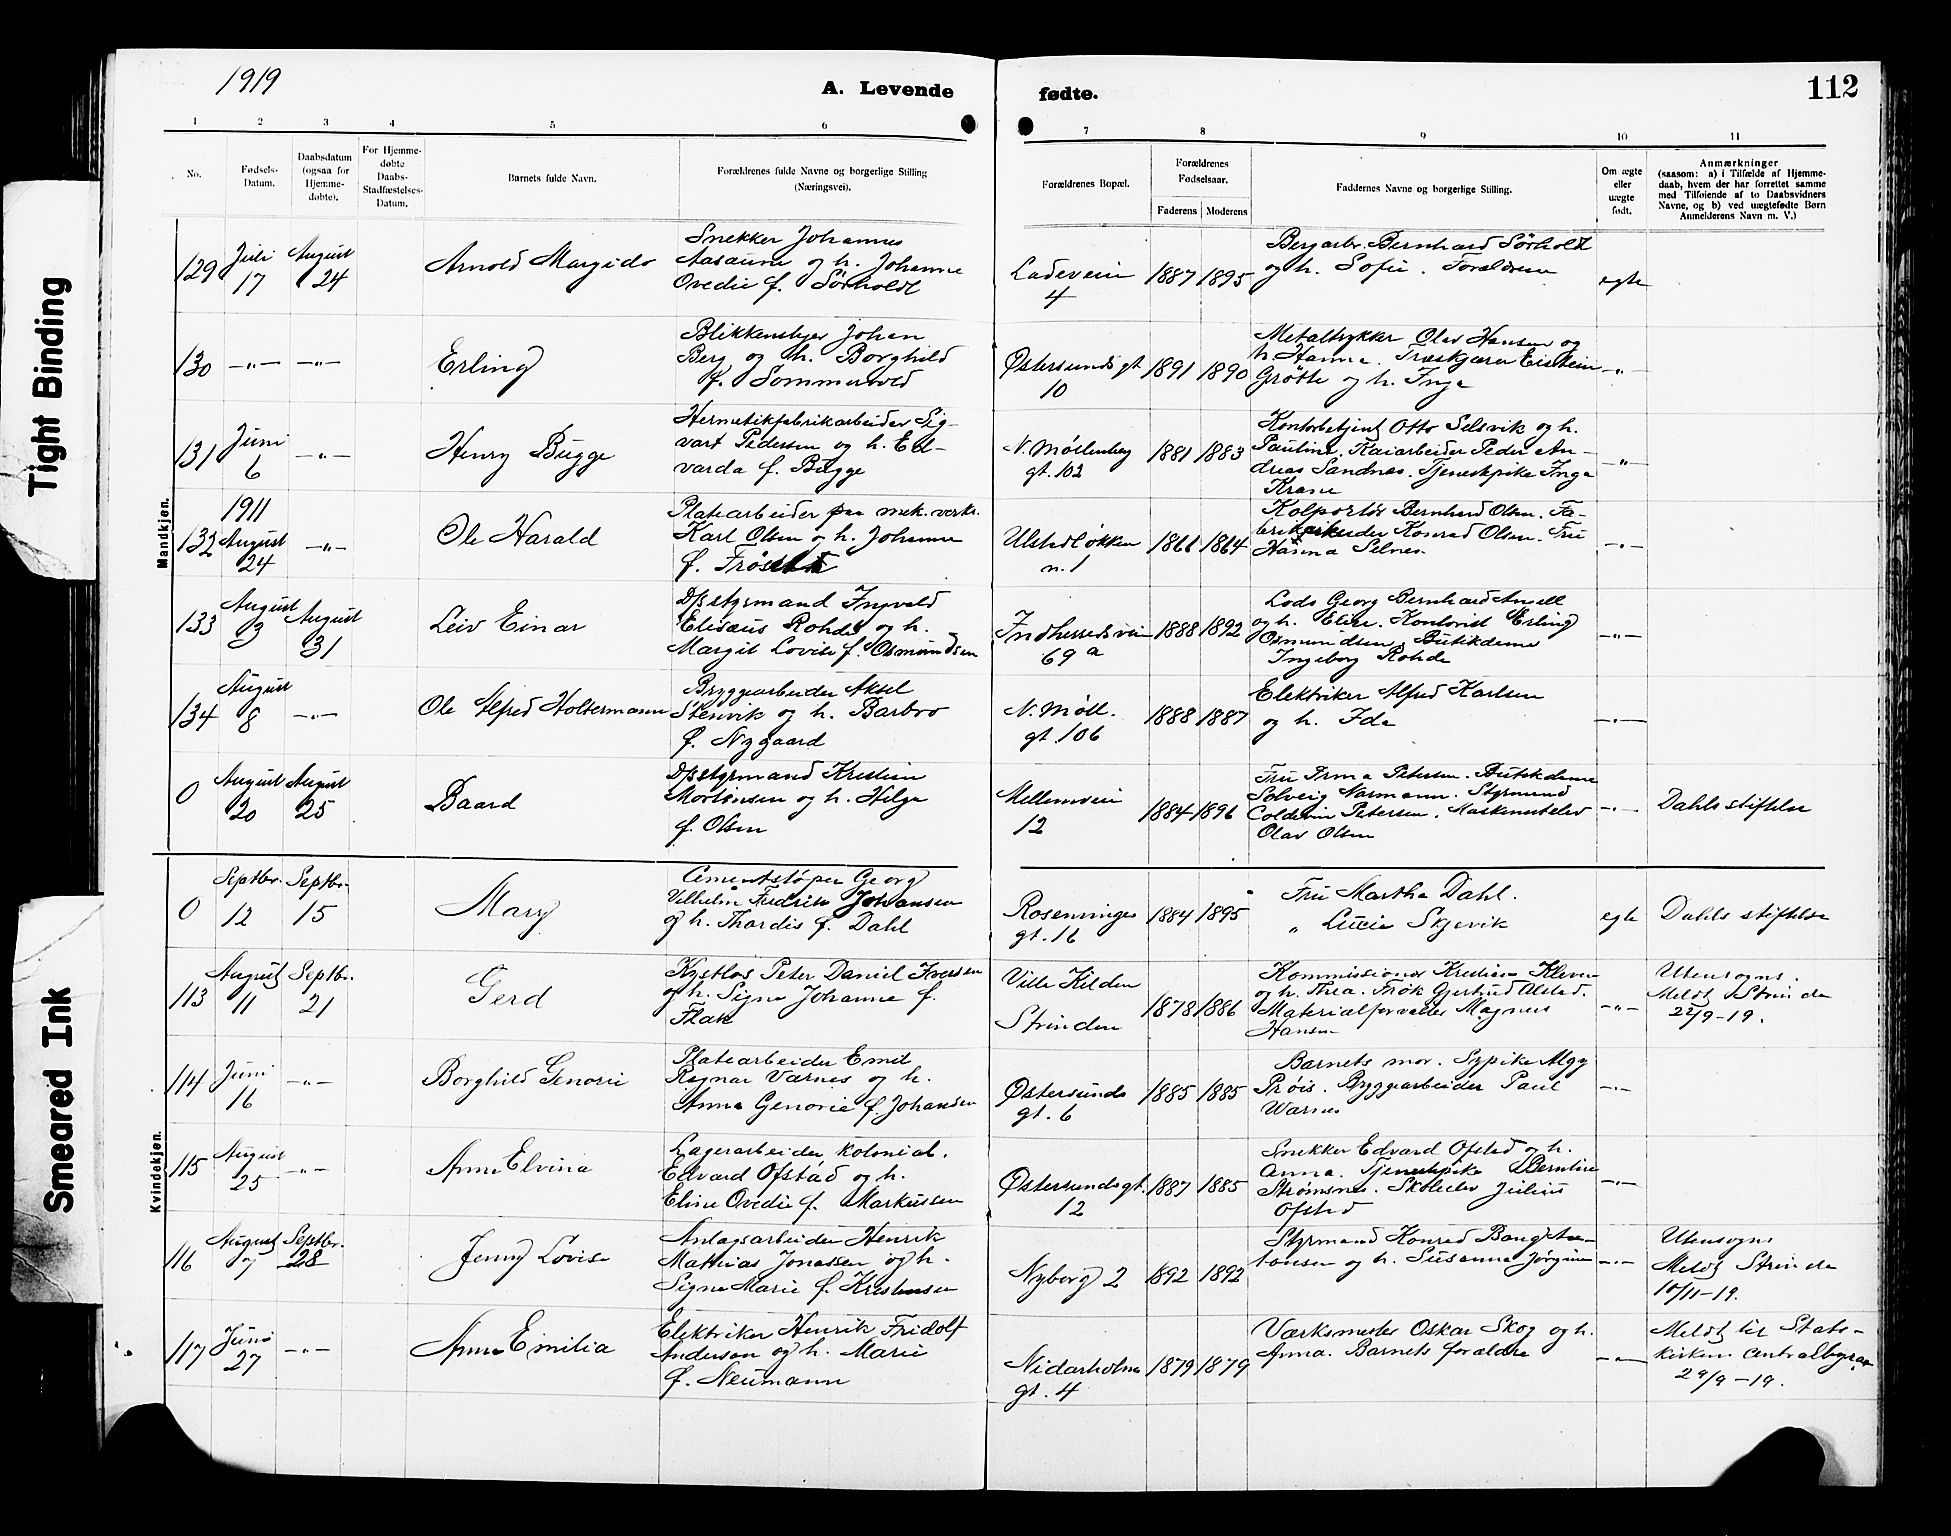 Tight Binding
Smeared Ink
1919
A. Levende fødte.
112
1 2 3 4 5 6 7 8 9 10 11
No.
Fødsels-
Datum.
Daabsdatum
(ogsaa for
Hjemme-
døbte).
For Hjemme-
døbte
Daabs-
Stadfæstelses-
Datum.
Barnets fulde Navn.
Forældrenes fulde Navne og borgerlige Stilling
(Næringsvei).
Forældrenes Bopæl.
Forældrenes
Fødselsaar.
Faderens Moderens
Faddernes Navne og borgerlige Stilling.
Om ægte
eller
uægte
født.
Anmærkninger
(saasom: a) i Tilfælde af Hjemme-
daab, hvem der har forrettet samme
med Tilføiende af to Daabsvidners
Navne, og b) ved uægtefødte Børn
Anmelderens Navn m. V.)
Mandkjøn.
129
Juli
17
August
24
Arnold Margido
Snekker Johannes
Aasaune og h. Johanne
Ovedie f. Sørholdt
Ladeveien
4
1887 1895
Bergarbr. Bernhard Sørholdt
og h. Sofie. Forældrene
egte
130
—"— —"—
Erling
Blikkenslager Johan
Berg og h. Borghild
f. Sommervold
Østersundsgt
10
1891 1890
Metaltrykker Olav Hansen og
h. Hanna. Træskjærer Eistein
Grøtte og h. Inga
—"—
131
Juni
6
—"—
Henry Bugge
Hermetikfabrikarbeider Sig-
vart Pedersen og h. Ed-
varda f. Bugge
N. Møllenberg
gt. 102
1881 1883
Kontorbetjent Otto Selsvik og h.
Pauline. Kaiarbeider Peder An-
dreas Sandnes. Tjenestpike Inga
Krane
—"—
132
1911
August
24
—"—
Ole Harald
Platearbeider paa mek. verks.
Karl Olsen og h. Johanna
f. Frøseth
Ulstadløkken
n. 1
1861 1864
Kolportør Bernhard Olsen. Fa-
brikarbeider Konrad Olsen. Fru
Hanna Selnes.
—"—
133
August
3
August
31
Leiv Einar
D/s styrmand Ingvald
Eliseus Rohde og h.
Margit Lovise f. Osmundsen
Indherredsveien
69 a
1888 1892
Lods Georg Bernhard Ansell
og h. Elise. Kontorist Erling
Osmundsen. Butikdame
Ingeborg Rohde
—"—
134
August
8
—"—
Ole Alfred Holtermann
Bryggearbeider Aksel
Stenvik og h. Barbro
f. Nygaard
N. Møll.
gt. 106
1888 1887
Elektriker Alfred Karlsen
og h. Ida
—"—
0
August
20
August
25
Baard
D/s styrmand Kristian
Mortensen og h. Helga
f. Olsen
Mellemveien
12
1884 1896
Fru Irma Petersen. Butikdame
Solveig Normann. Styrmand
Petersen. Maskinistelev
Olav Olsen
—"—
Dahls stiftelse
Kvindekjøn.
0
Septbr.
12
Septbr.
15
Mary
Cementstøper Georg
Vilhelm Fredrik Johansen
og h. Thordis f. Dahl
Rosenborges
gt. 16
1884 1895
Fru Martha Dahl.
" Lucie Skjevik
egte
Dahls stiftelse
113
August
11
Septbr.
21
Gerd
Kystlos Peter Daniel Iversen
og h. Signe Johanne f.
Flak
Villa Kilden
Strinden
1878 1886
Kommissionær Kristian Kleven
og h. Thea. Frøk Gjertrud Alstad.
Materialforvalter Magnus
Hansen
—"—
Utensogns.
Meldt Strinda
22/9-19.
114
Juni
16
—"—
Borghild Genorie
Platearbeider Emil
Ragnar Værnes og h.
Anna Genorie f. Johansen
Østersunds
gt. 6
1885 1885
Barnets mor. Sypike Alga
Prøis. Bryggearbeider Paul
Warnes
—"—
115
August
25
—"—
Anna Elvina
Lagerarbeider kolonial.
Edvard Ofstad og h.
Elise Ovedie f. Markussen
Østersundsgt.
12
1887 1885
Snekker Edvard Ofsted og h.
Anna. Tjenestpike Berntine
Strømsnes. Skoleelev Julius
Ofstad
—"—
116
August
7
Septbr.
28
Jenny Lovise
Anlagsarbeider Henrik
Mathias Jonassen og h.
Signe Marie f. Kristensen
Nyborg 2
1892 1892
Styrmand Konrad Bang An-
tonsen og h. Susanna Jørgine
—"—
Utensogns
Meldt Strinda
10/11-19.
117
Juni
27
—"—
Anna Emilia
Elektriker Henrik Fridolf
Anderson og h. Marie
f. Neumann
Nidarholms
gt. 4
1879 1879
Værksmester Oskar Skog og h.
Anna. Barnets forældre
—"—
Meldt til Stats-
kirken. Centralbyraa
29/9-19.